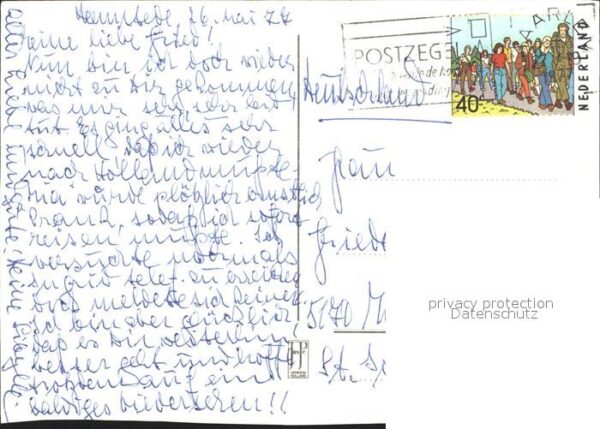 Heemstede, 26. Mai 77
Meine liebe Friedel!
Nun bin ich doch wieder
nicht zu Dir gekommen,
was mir sehr, sehr leid
tut. Es ging alles sehr
schnell, daß ich wieder
nach Holland mußte.
wurde plötzlich ernstlich
krank, so daß ich sofort
reisen mußte. Ich
versuchte nochmals
telef. zu erreichen
doch meldete sich keiner.
Ich bin aber glücklich
daß es Dir gestern
besser geht und hoffe
trotzdem auf ein
baldiges Wiedersehen!!
Alles Liebe und Gute! Deine
POSTZEG
40c
NEDERLAND
Deutschland
Frau
Friede
5170
St.
JSP
privacy protection
Datenschutz